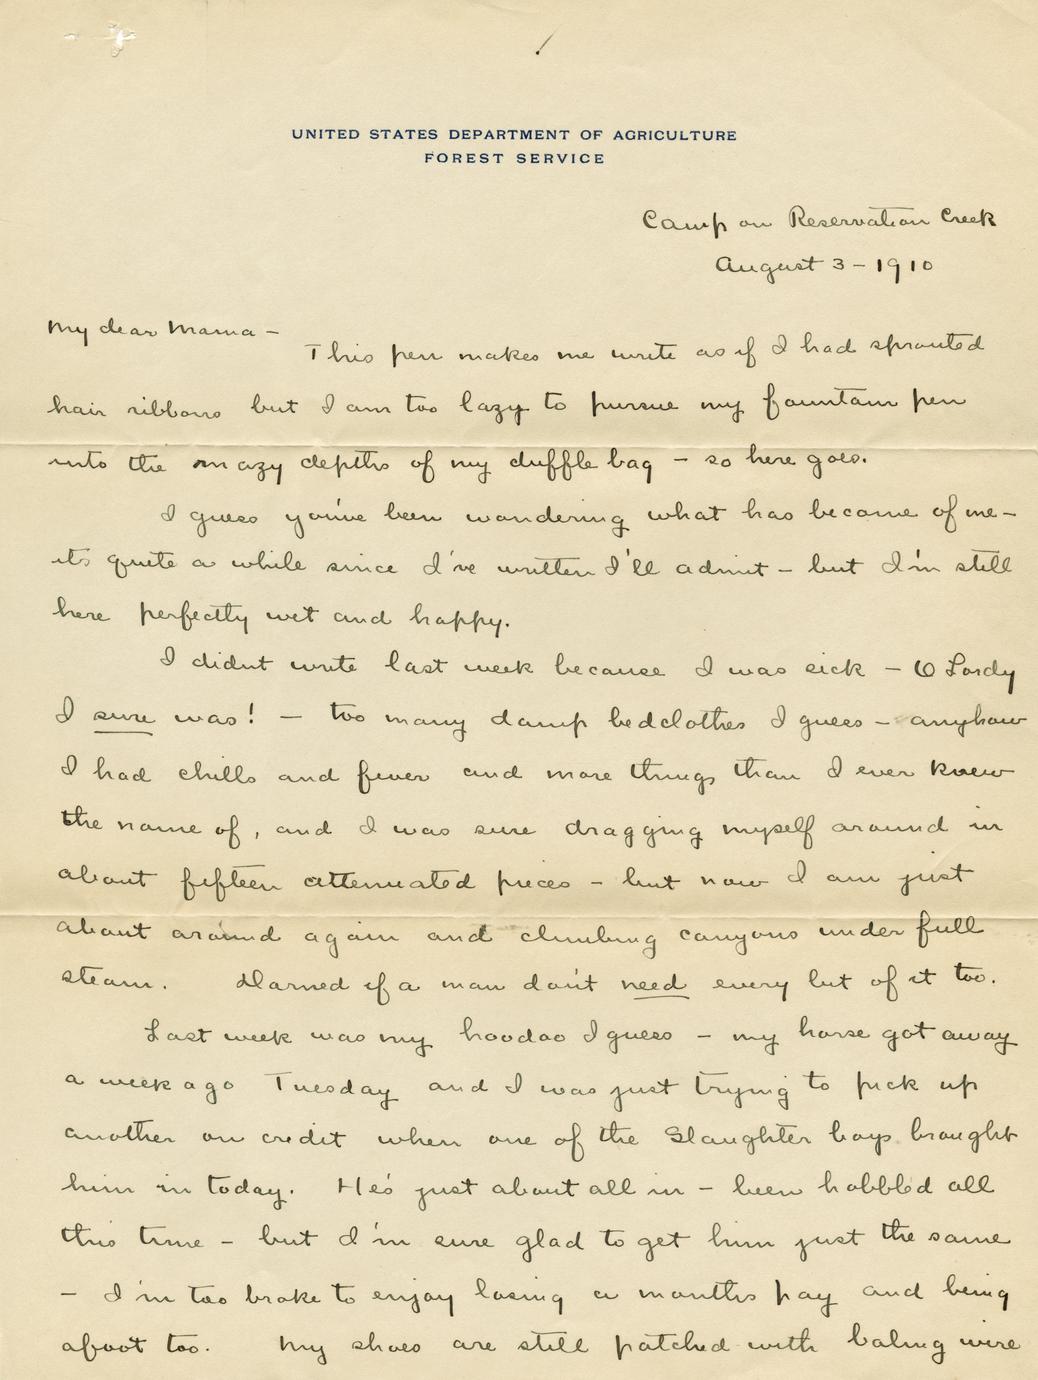 UNITED STATES DEPARTMENT OF AGRICULTURE
FOREST SERVICE
Camp on Reservation Creek
August 3 – 1910
My dear Mama –
This pen makes me write as if I had sprouted
hair ribbons but I am too lazy to pursue my fountain pen
into the mazy depths of my duffle bag – so here goes.
I guess you've been wondering what has become of me –
its quite a while since I've written I'll admit – but I'm still
here perfectly wet and happy.
I didn't write last week because I was sick – O Lordy
I sure was! – too many damp bedclothes I guess – anyhow
I had chills and fever and more things than I ever knew
the name of, and I was sure dragging myself around in
about fifteen attenuated pieces – but now I am just
about around again and climbing canyons under full
steam. Darned if a man don't need every bit of it too.
Last week was my hoodoo I guess – my horse got away
a week ago Tuesday and I was just trying to pick up
another on credit when one of the Slaughter boys brought
him in today. He's just about all in – been hobbled all
this time – but I'm sure glad to get him just the same
– I'm too broke to enjoy losing a months pay and being
afoot too. My shoes are still patched with baling wire